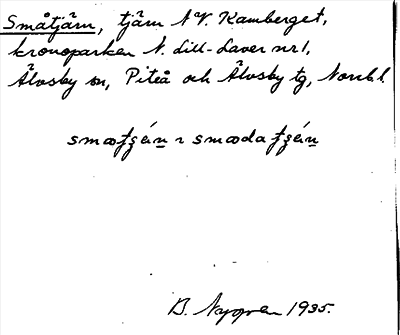 Småtjärn, tjärn NV. Kamberget,
kronoparken N. Lill-Laver nr 1,
Älvsby sn, Piteå och Älvsby tg, Norrb. l.
B. Nygren 1935.